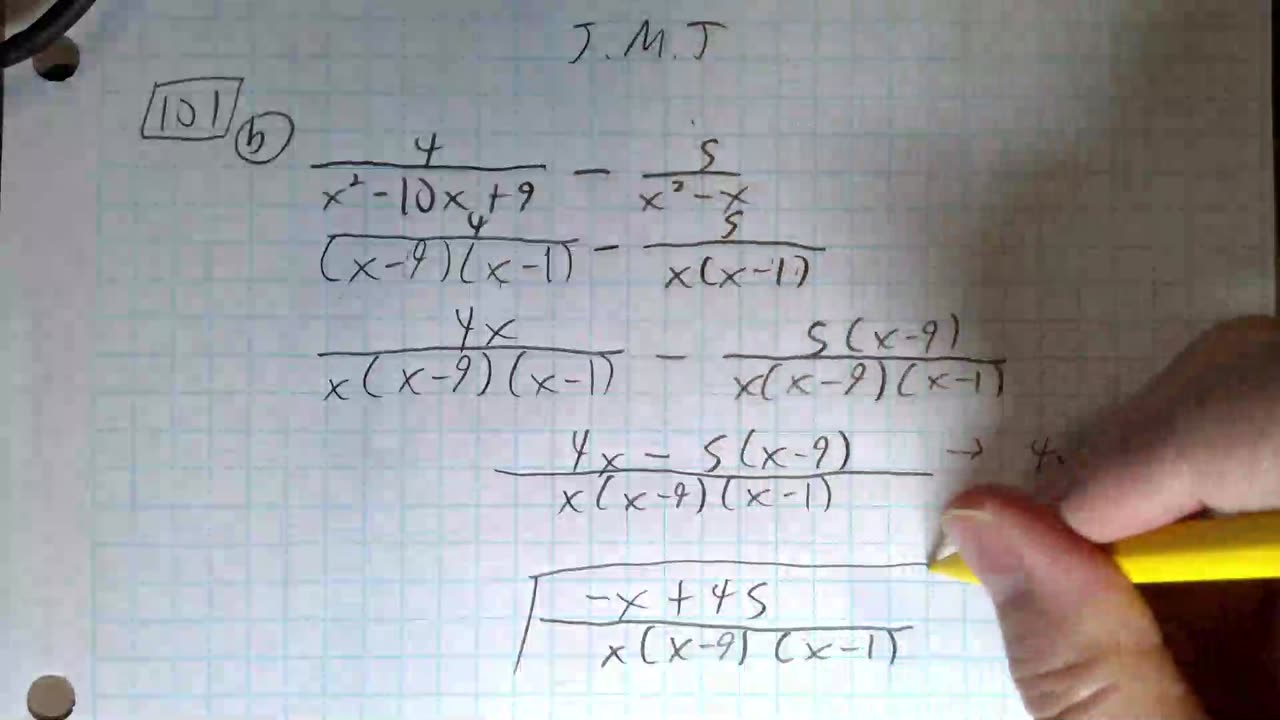 J.M.J
101 b
4/(x²-10x+9) - 5/(x²-x)
4/((x-9)(x-1)) - 5/(x(x-1))
4x/(x(x-9)(x-1)) - 5(x-9)/(x(x-9)(x-1))
(4x - 5(x-9))/(x(x-9)(x-1)) → 4
(-x+45)/(x(x-9)(x-1))